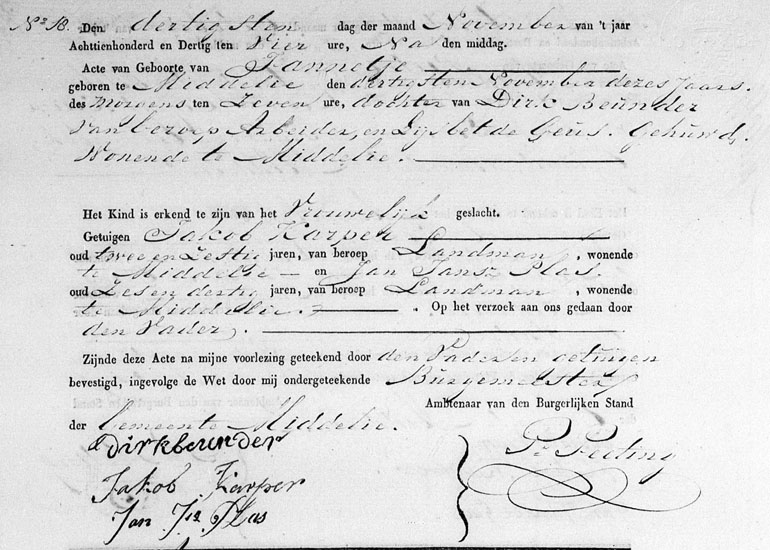 Nº 18. Den dertigsten dag der maand November van 't jaar
Achttienhonderd en Dertig ten Vier ure, Na den middag.
Acte van Geboorte van Jannetje
geboren te Middelie den dertigsten November dezes Jaars.
des morgens ten Zeven ure, dochter van Dirk Beunder
van beroep Arbeider, en Lijsbet de Geus. Gehuwd,
Wonende te Middelie.
Het Kind is erkend te zijn van het Vrouwelijk geslacht.
Getuigen Jakob Karper
oud twee en Zestig jaren, van beroep Landman, wonende
te Middelie en Jan Jansz Plas.
oud Zes en dertig jaren, van beroep Landman, wonende
te Middelie. Op het verzoek aan ons gedaan door
den Vader.
Zijnde deze Acte na mijne voorlezing geteekend door den Vader en getuigen
bevestigd, ingevolge de Wet door mij ondergeteekende Burgemeester
Ambtenaar van den Burgerlijken Stand
der Gemeente Middelie.
dirk beunder
Jakob Karper
Jan Jsz Plas